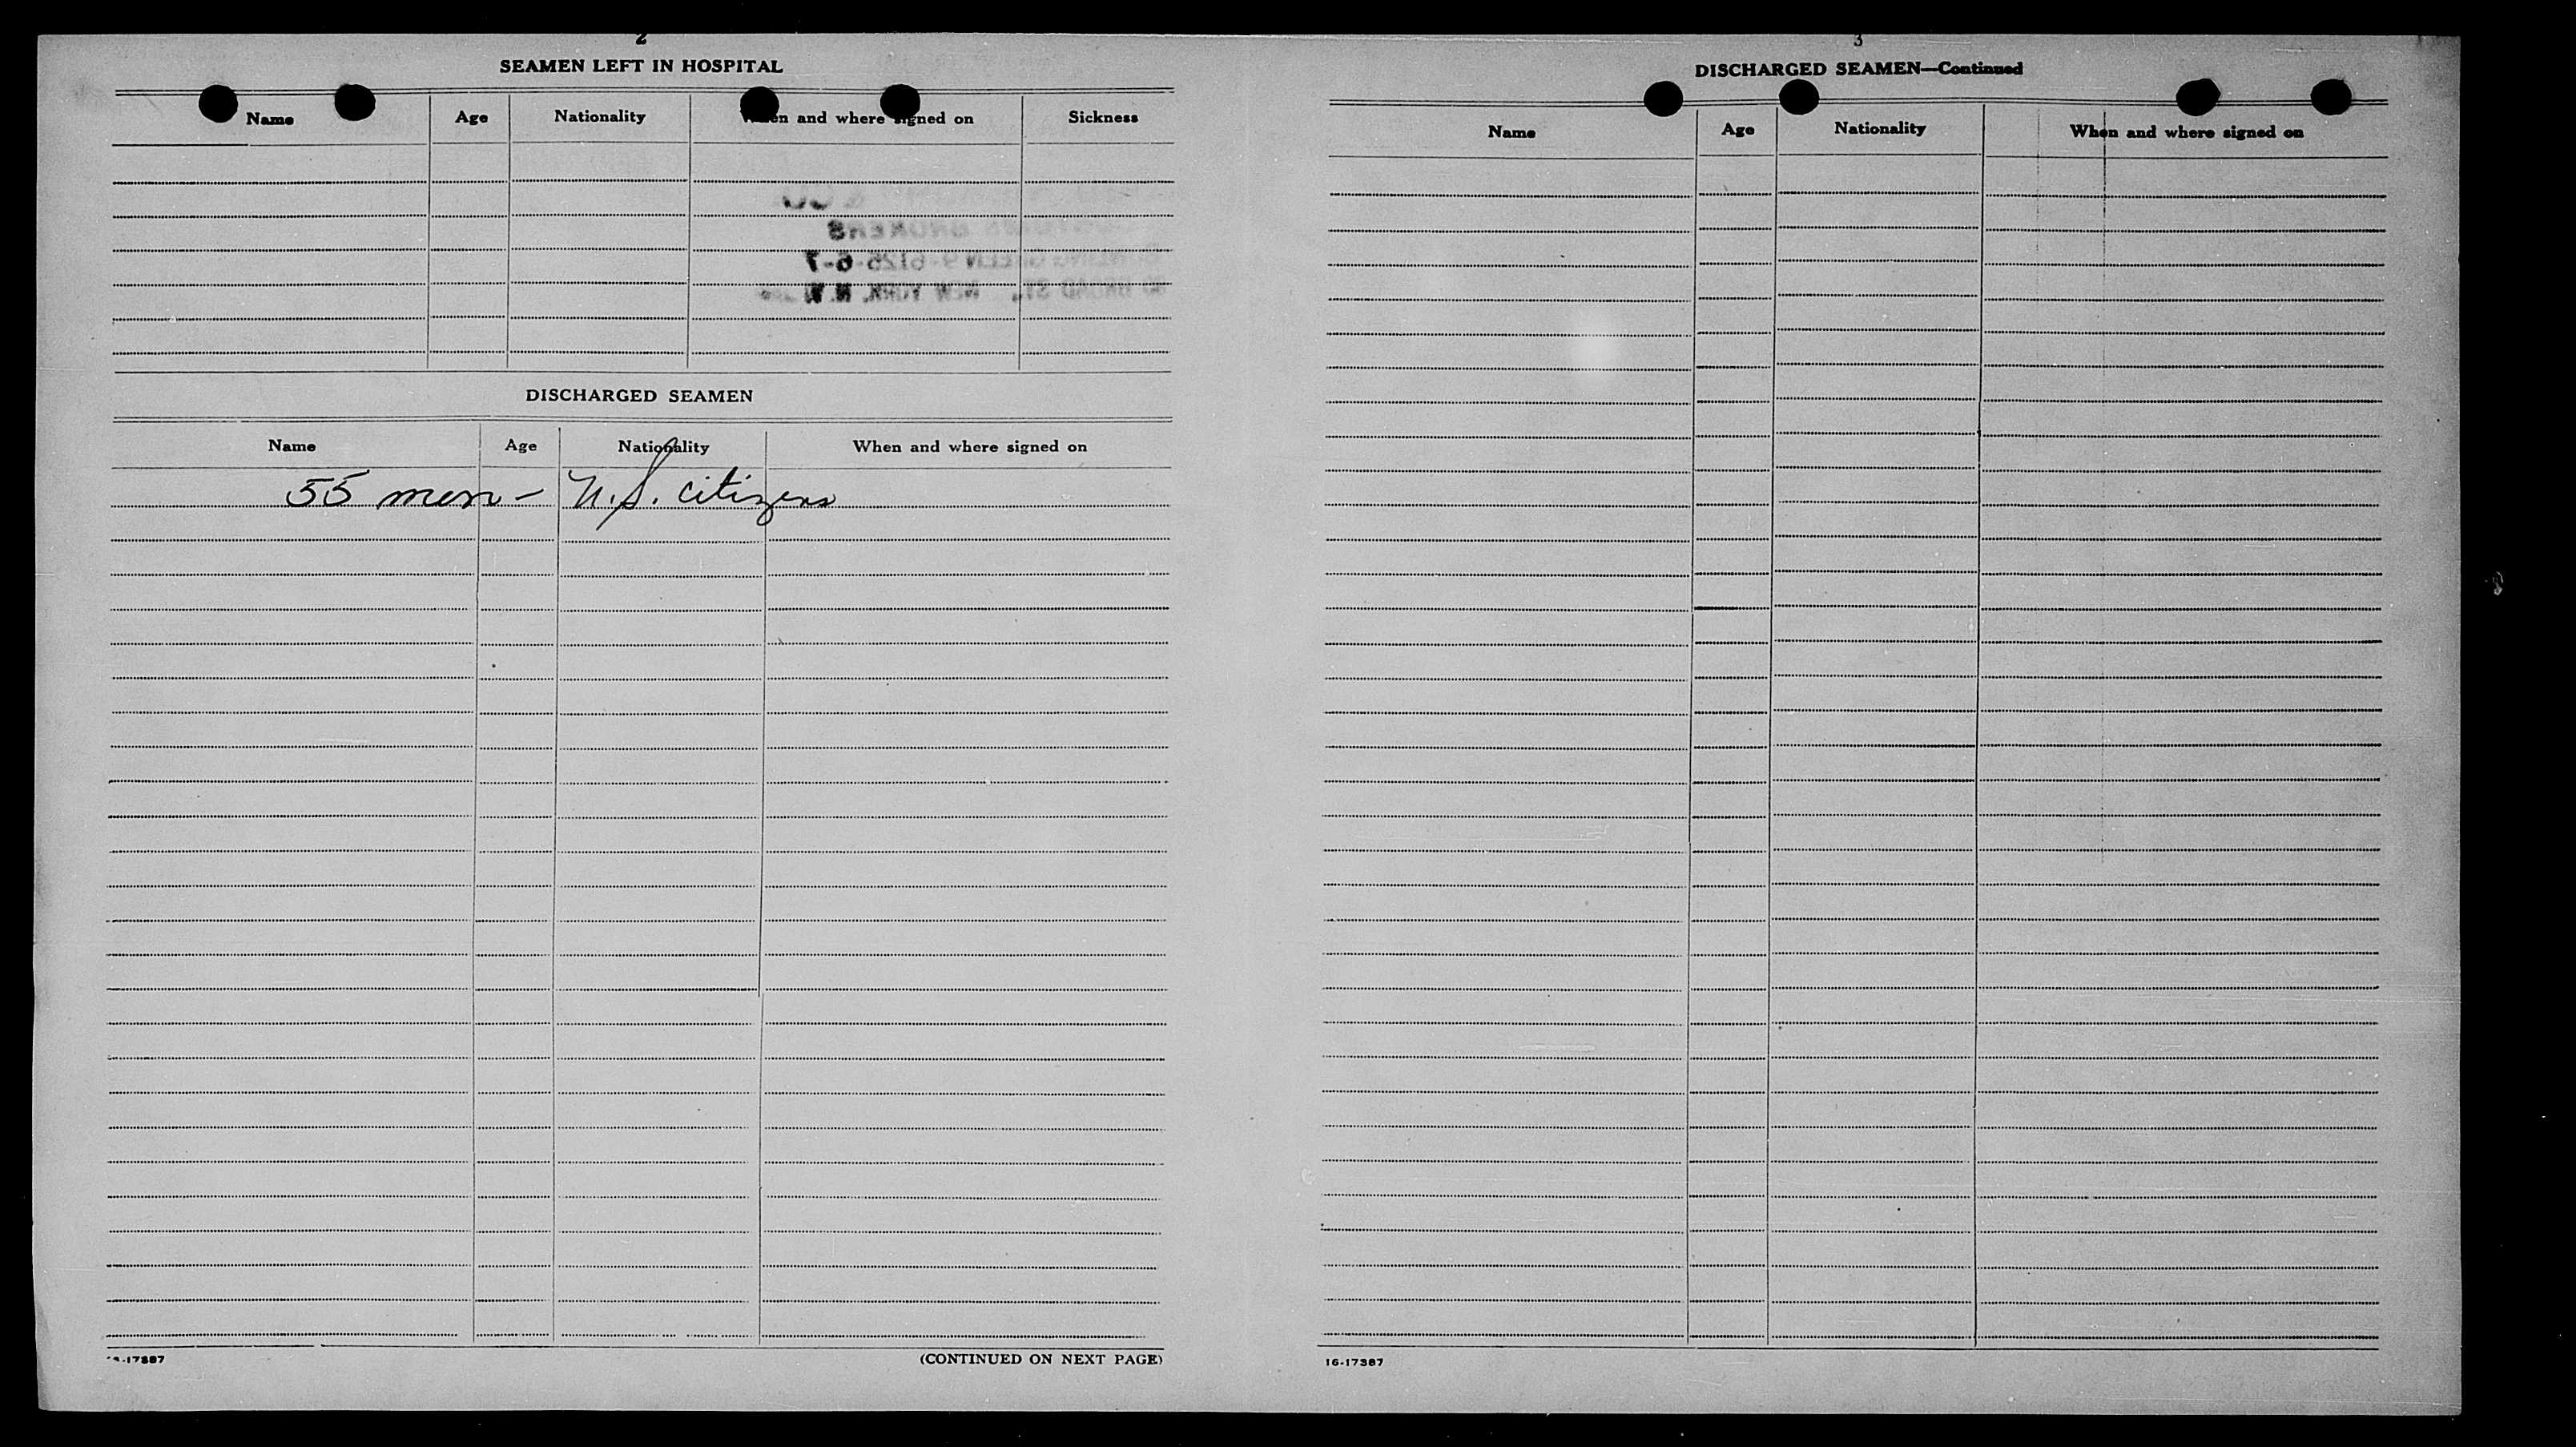 2
SEAMEN LEFT IN HOSPITAL
Name Age Nationality When and where signed on Sickness
& CO
BROKERS
9-6125-6-7
BROAD ST., NEW YORK, N.Y.
DISCHARGED SEAMEN
Name Age Nationality When and where signed on
55 men - U.S. citizens
16-17387
(CONTINUED ON NEXT PAGE)
3
DISCHARGED SEAMEN—Continued
Name Age Nationality When and where signed on
16-17387